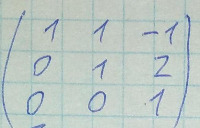 1 1 -1
0 1 2
0 0 1